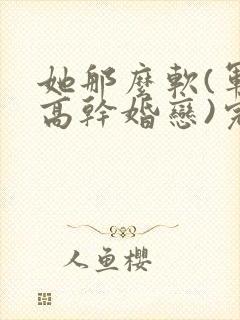 她那麼軟(軍
高幹婚戀)完
人魚櫻